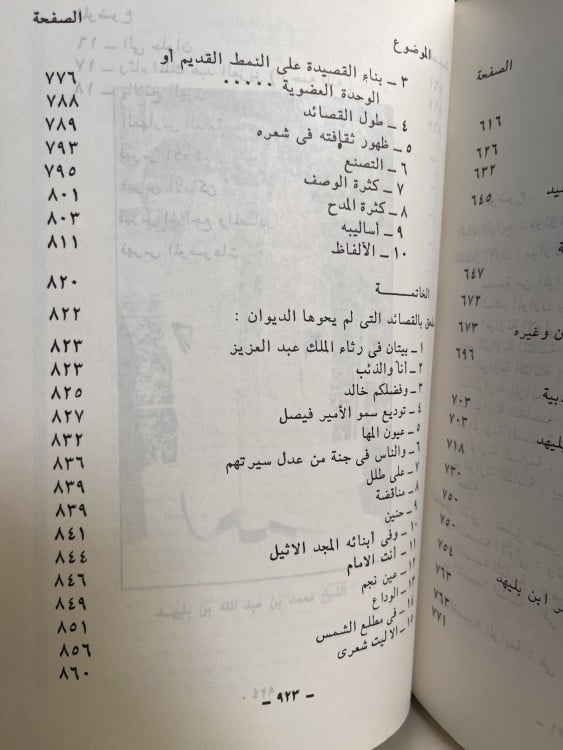 الموضوع الصفحة
٣ ـ بناء القصيدة على النمط القديم أو
الوحدة العضوية ..... ٧٧٦
٤ ـ طول القصائد ٧٨٨
٥ ـ ظهور ثقافته فى شعره ٧٨٩
٦ ـ التصنع ٧٩٣
٧ ـ كثرة الوصف ٧٩٥
٨ ـ كثرة المدح ٨٠١
٩ ـ أساليبه ٨٠٣
١٠ ـ الألفاظ ٨١١
الخاتمـــــة ٨٢٠
ملحق بالقصائد التى لم يحوها الديوان : ٨٢٢
١ ـ بيتان فى رثاء الملك عبد العزيز ٨٢٣
٢ ـ أنا والذئب ٨٢٣
٣ ـ وفضلكم خالد ٨٢٥
٤ ـ توديع سمو الأمير فيصل ٨٢٧
٥ ـ عيون المها ٨٣٢
٦ ـ والناس فى جنة من عدل سيرتهم ٨٣٦
٧ ـ على طلل ٨٣٩
٨ ـ مناقضة ٨٣٩
٩ ـ حنين ٨٤١
١٠ ـ وفى أبنائه المجد الاثيل ٨٤٤
١١ ـ أنت الامام ٨٤٦
١٢ ـ عين نجم ٨٤٩
١٣ ـ الوداع ٨٥١
١٤ ـ فى مطلع الشمس ٨٥٦
١٥ ـ الا ليت شعرى ٨٦٠
ـ ٩٢٣ ـ
الصفحة
٦١٦
٦٢٦
٦٣٢
٦٤٥
٦٤٧
٦٧٢
ن وغيره ٦٧٣
٦٩٦
دبية ٧٠٣
بليهد ٧٠٣
٧١٨
٧٣٠
٧٥٠
٧٥٠
٧٥٤
ر ابن بليهد ٧٦٣
٧٦٣
٧٧١